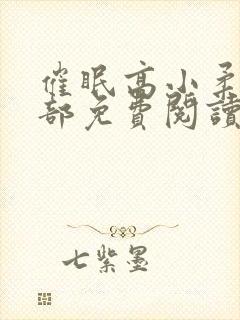 催眠高小柔
部免費閱讀
七紫墨